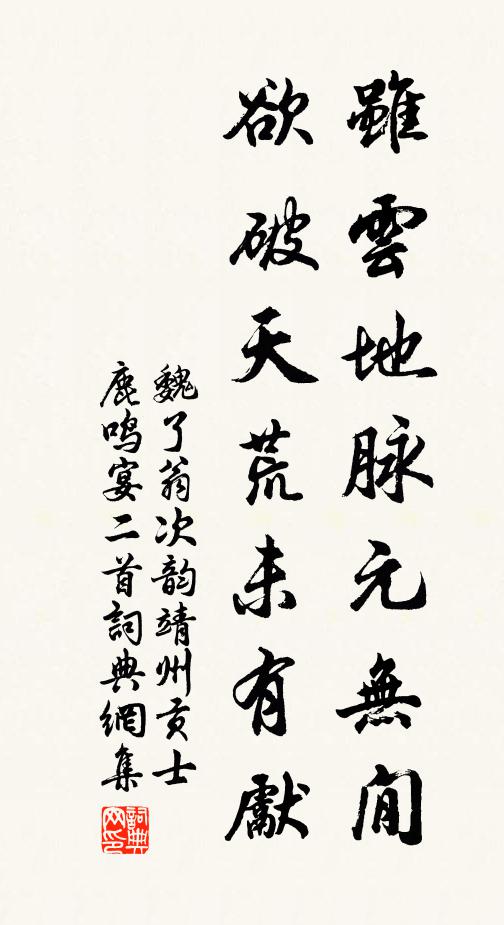 雖雲地脉元無間
欲破天荒未有獻
魏了翁次韵靖州贡士
鹿鸣宴二首詞典網集
詞典
网印